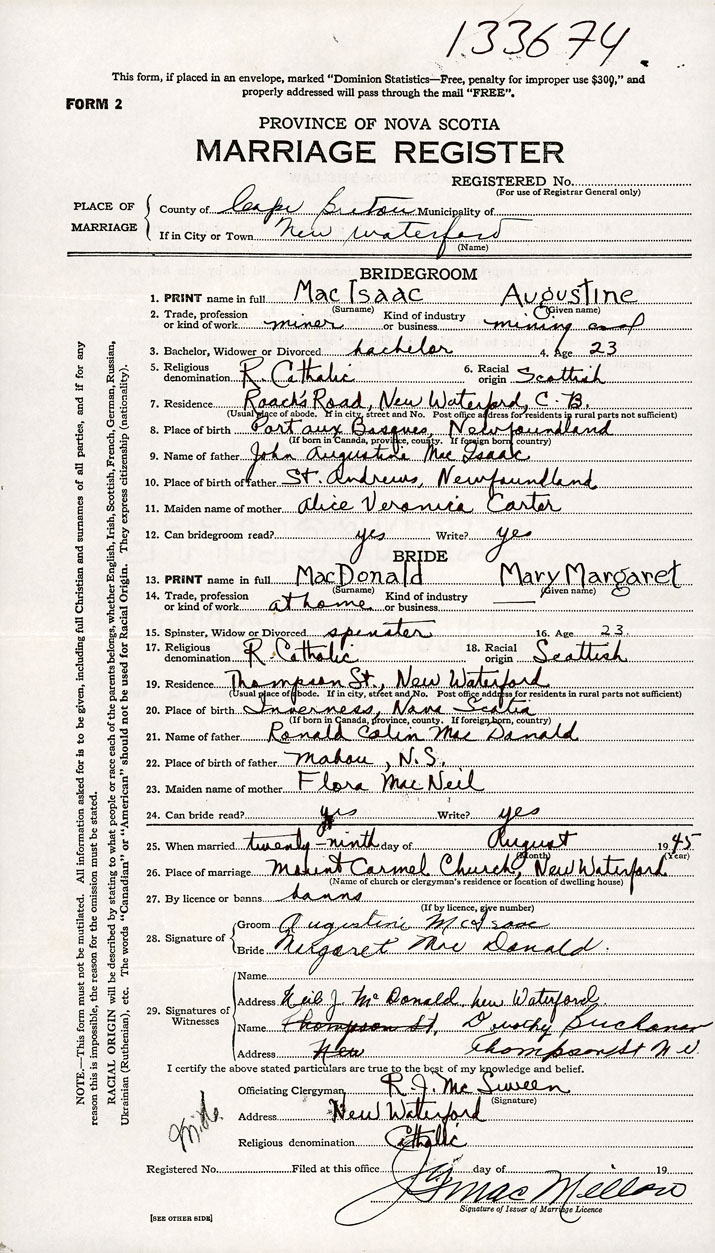 133674
This form, if placed in an envelope, marked "Dominion Statistics—Free, penalty for improper use $300," and
properly addressed will pass through the mail "FREE".
FORM 2
PROVINCE OF NOVA SCOTIA
MARRIAGE REGISTER
REGISTERED No.
(For use of Registrar General only)
PLACE OF MARRIAGE
County of Cape Breton Municipality of
If in City or Town New Waterford
(Name)
BRIDEGROOM
1. PRINT name in full MacIsaac Augustine
(Surname) (Given name)
2. Trade, profession or kind of work miner Kind of industry or business mining coal
3. Bachelor, Widower or Divorced bachelor 4. Age 23
5. Religious denomination R. Catholic 6. Racial origin Scottish
7. Residence Roach's Road, New Waterford, C. B.
(Usual place of abode. If in city, street and No. Post office address for residents in rural parts not sufficient)
8. Place of birth Port aux Basques, Newfoundland
(If born in Canada, province, county. If foreign born, country)
9. Name of father John Augustine Mac Isaac
10. Place of birth of father St. Andrews, Newfoundland
11. Maiden name of mother Alice Veronica Carter
12. Can bridegroom read? yes Write? yes
BRIDE
13. PRINT name in full MacDonald Mary Margaret
(Surname) (Given name)
14. Trade, profession or kind of work at home Kind of industry or business —
15. Spinster, Widow or Divorced spinster 16. Age 23.
17. Religious denomination R. Catholic 18. Racial origin Scottish
19. Residence Thompson St., New Waterford
(Usual place of abode. If in city, street and No. Post office address for residents in rural parts not sufficient)
20. Place of birth Inverness, Nova Scotia
(If born in Canada, province, county. If foreign born, country)
21. Name of father Ronald Colin Mac Donald
22. Place of birth of father Mabou, N.S.
23. Maiden name of mother Flora MacNeil
24. Can bride read? yes Write? yes
25. When married twenty-ninth day of August 1945
(Month) (Year)
26. Place of marriage Mount Carmel Church, New Waterford
(Name of church or clergyman's residence or location of dwelling house)
27. By licence or banns banns
(If by licence, give number)
28. Signature of
Groom Augustine McIsaac
Bride Margaret Mac Donald.
29. Signatures of Witnesses
Name
Address Neil J. McDonald, New Waterford.
Name Thompson St, Dorothy Buchanan
Address New Thompson St N W
I certify the above stated particulars are true to the best of my knowledge and belief.
Officiating Clergyman R. J. Mc Sween
(Signature)
Address New Waterford
Religious denomination Catholic
Registered No. Filed at this office day of 19
Signature of Issuer of Marriage Licence
[SEE OTHER SIDE]
NOTE.—This form must not be mutilated. All information asked for is to be given, including full Christian and surnames of all parties, and if for any
reason this is impossible, the reason for the omission must be stated.
RACIAL ORIGIN will be described by stating to what people or race each of the parents belongs, whether English, Irish, Scottish, French, German, Russian,
Ukrainian (Ruthenian), etc. The words "Canadian" or "American" should not be used for Racial Origin. They express citizenship (nationality).